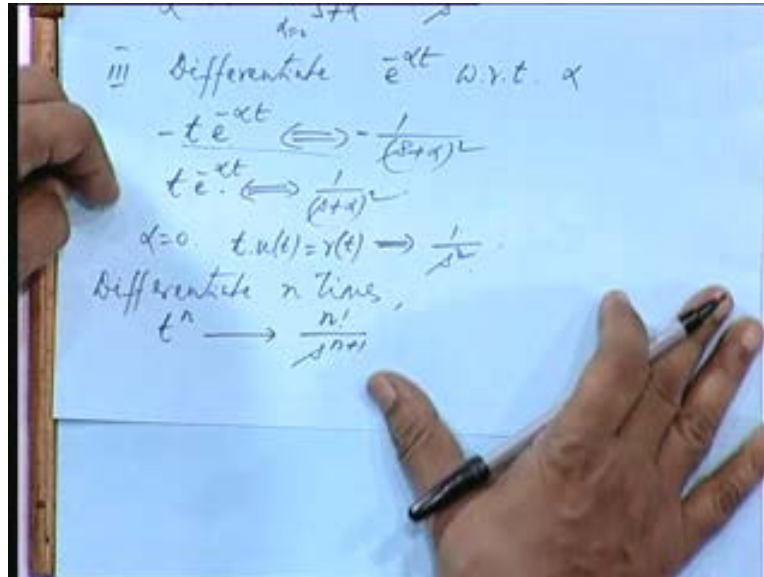 α=0 s+α s
III Differentiate e^{-αt} w.r.t. α
- t e^{-αt} ⟺ - 1/(s+α)^2
t e^{-αt} ⟺ 1/(s+α)^2
α=0 t.u(t) = r(t) ⟹ 1/s^2
Differentiate n times,
t^n ⟶ n!/s^{n+1}